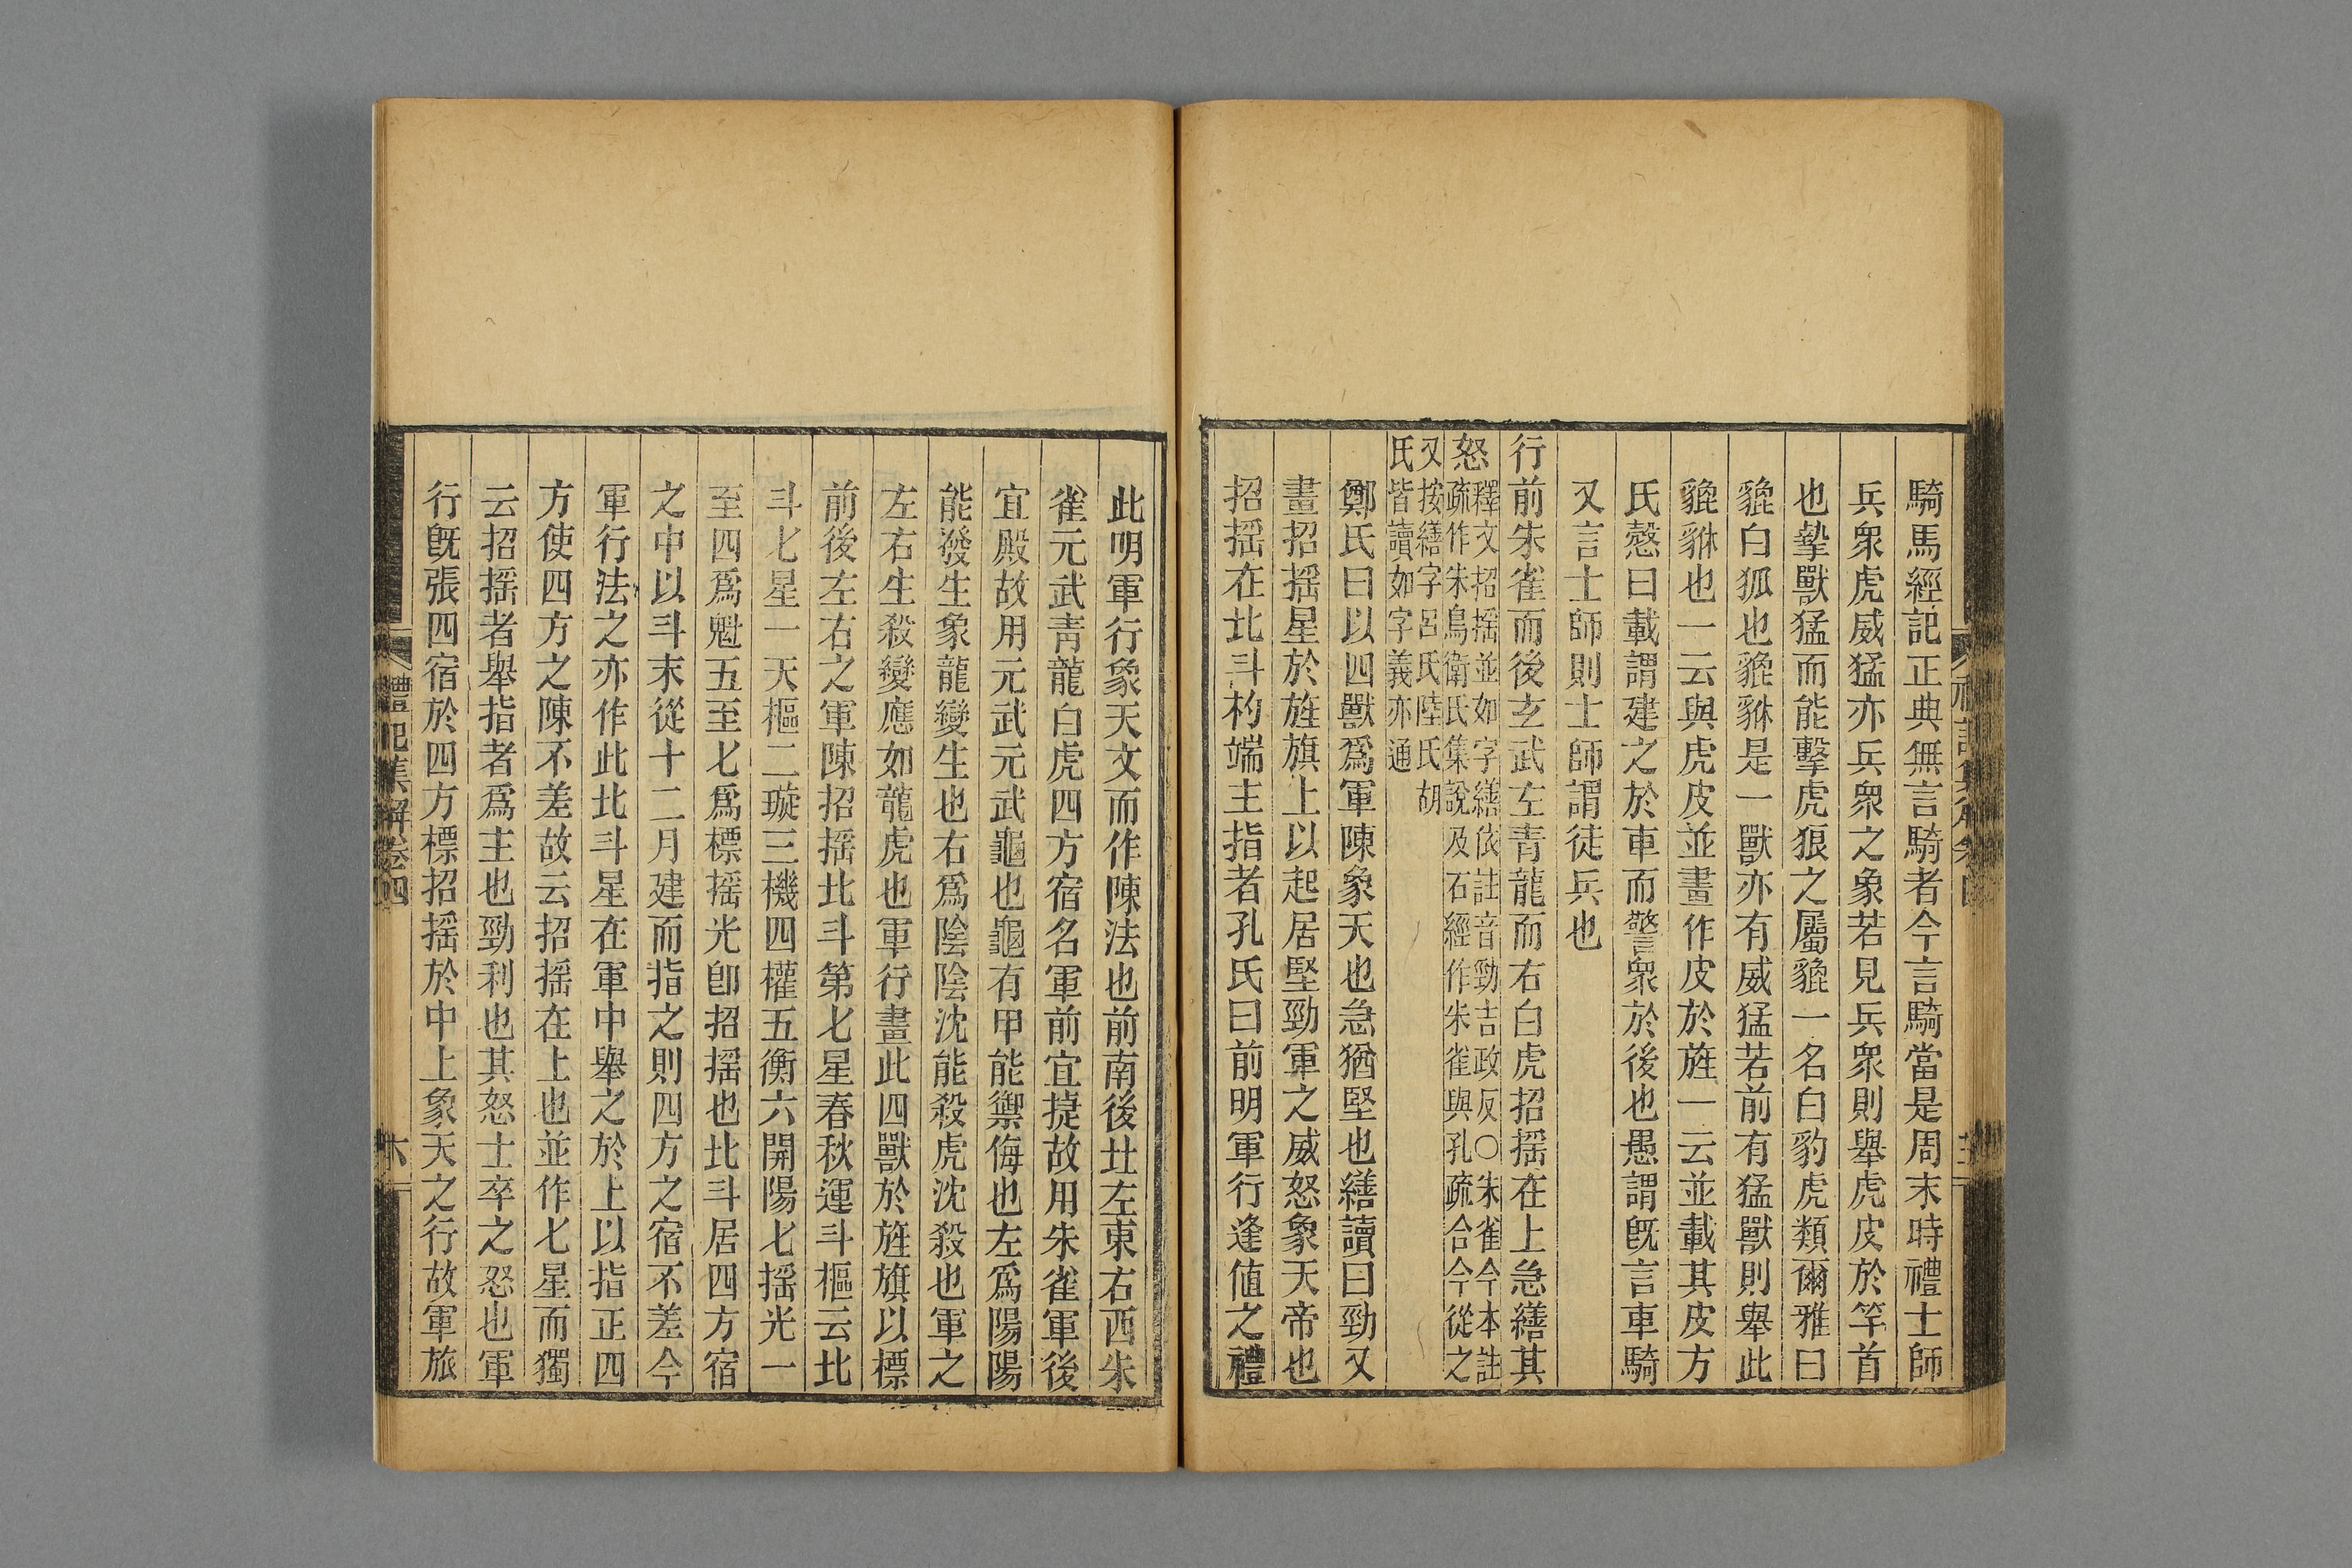 騎馬經記正典無言騎者今言騎當是周末時禮士師
兵衆虎威猛亦兵衆之象若見兵衆則舉虎皮於竿首
也摯獸猛而能擊虎狼之屬貔一名白豹虎類爾雅曰
貔白狐也貔貅是一獸亦有威猛若前有猛獸則舉此
貔貅也一云與虎皮並畫作皮於旌一云並載其皮方
氏慤曰載謂建之於車而警衆於後也愚謂旣言車騎
又言士師則士師謂徒兵也
行前朱雀而後玄武左青龍而右白虎招搖在上急繕其
怒釋文招搖並如字繕依註音勁吉政反○朱雀今本註
疏作朱鳥衛氏集說及石經作朱雀與孔疏合今從之
又按繕字呂氏陸氏胡
氏皆讀如字義亦通
鄭氏曰以四獸爲軍陳象天也急猶堅也繕讀曰勁又
畫招搖星於旌旗上以起居堅勁軍之威怒象天帝也
招搖在北斗杓端主指者孔氏曰前明軍行逢值之禮
此明軍行象天文而作陳法也前南後北左東右西朱
雀元武靑龍白虎四方宿名軍前宜捷故用朱雀軍後
宜殿故用元武元武龜也龜有甲能禦侮也左爲陽陽
能發生象龍變生也右爲陰陰沈能殺虎沈殺也軍之
左右生殺變應如龍虎也軍行畫此四獸於旌旗以標
前後左右之軍陳招搖北斗第七星春秋運斗樞云北
斗七星一天樞二璇三機四權五衡六開陽七搖光一
至四爲魁五至七爲標搖光卽招搖也北斗居四方宿
之中以斗末從十二月建而指之則四方之宿不差今
軍行法之亦作此北斗星在軍中舉之於上以指正四
方使四方之陳不差故云招搖在上也並作七星而獨
云招搖者舉指者爲主也勁利也其怒士卒之怒也軍
行旣張四宿於四方標招搖於中上象天之行故軍旅
禮記集解卷四
六